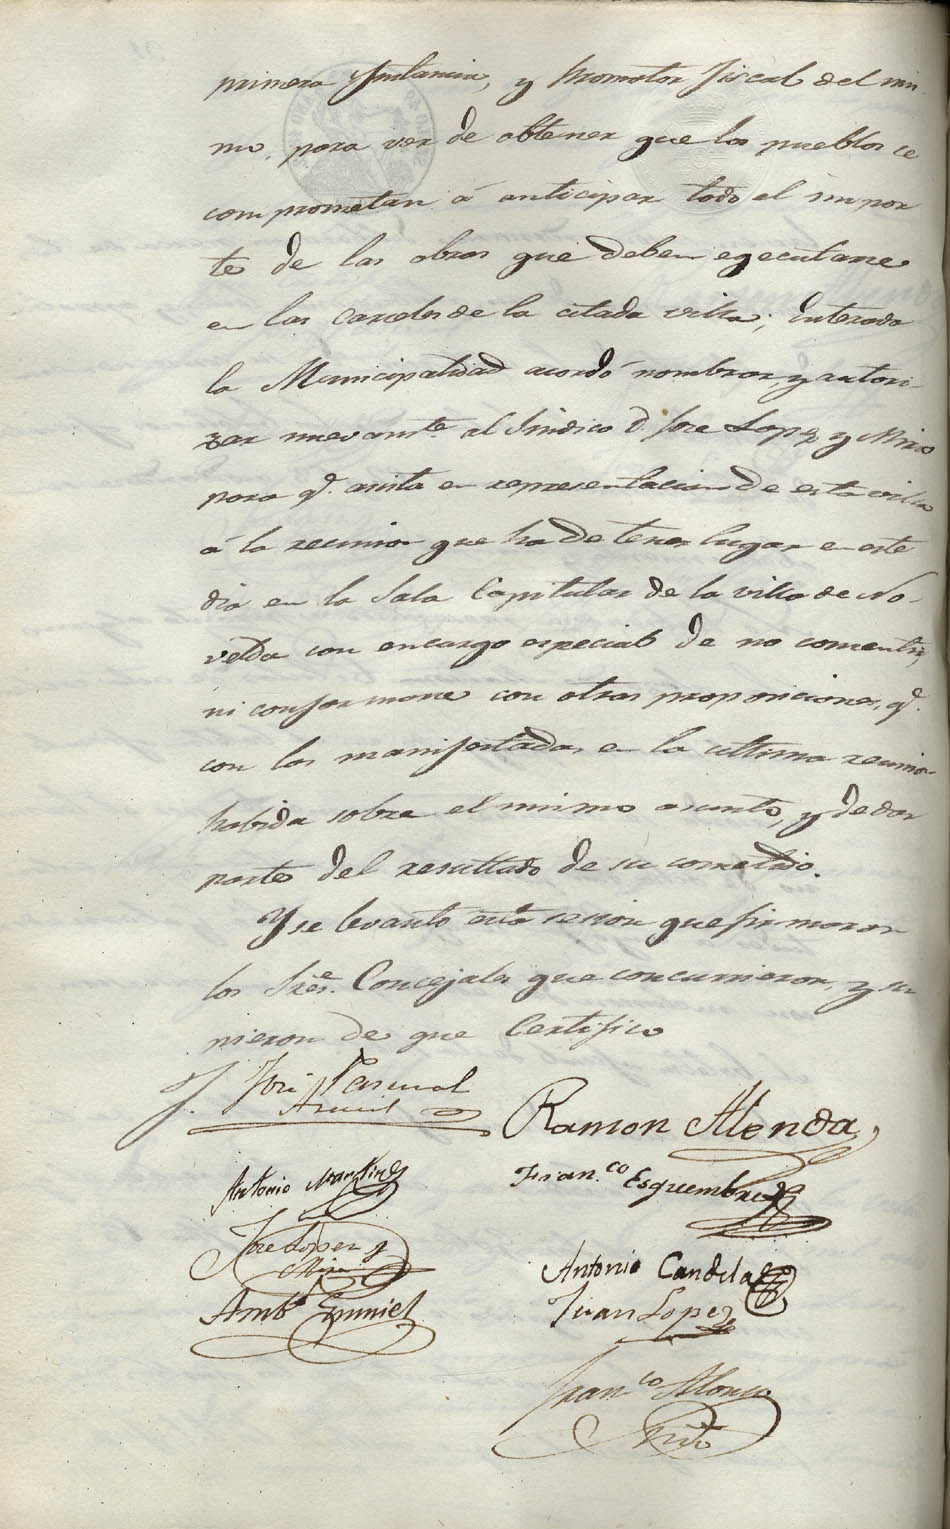 primera Ynstancia, y Promotor fiscal del mis-
mo, para ver de obtener que los pueblos se
comprometan á anticipar todo el impor
te de las obras que deben egecutarse
en las Carceles de la citada villa; enterada
la Municipalidad acordó nombrar, y autori-
zar nuevamte. al Sindico D. Jose Lopez y Mira
para qe. asista en representacion de esta villa
á la reunion que ha de tener lugar en este
dia en la Sala Capitular de la villa de No-
velda con encargo especial de no consentir,
ni conformarse con otras proposiciones, qe.
con las manifestadas en la ultima reunion
habida sobre el mismo asunto, y de dar
parte del resultado de su cometido.
Y se levantó esta sesion que firmaron
los Sres. Concejales que concurrieron, y su
pieron de que Certifico
José Pascual
Ramon Alenda
Antonio Martinez
Franco. Esquembre
Jose Lopez y
Mira
Antonio Candela
Juan Lopez
Franco Alonso